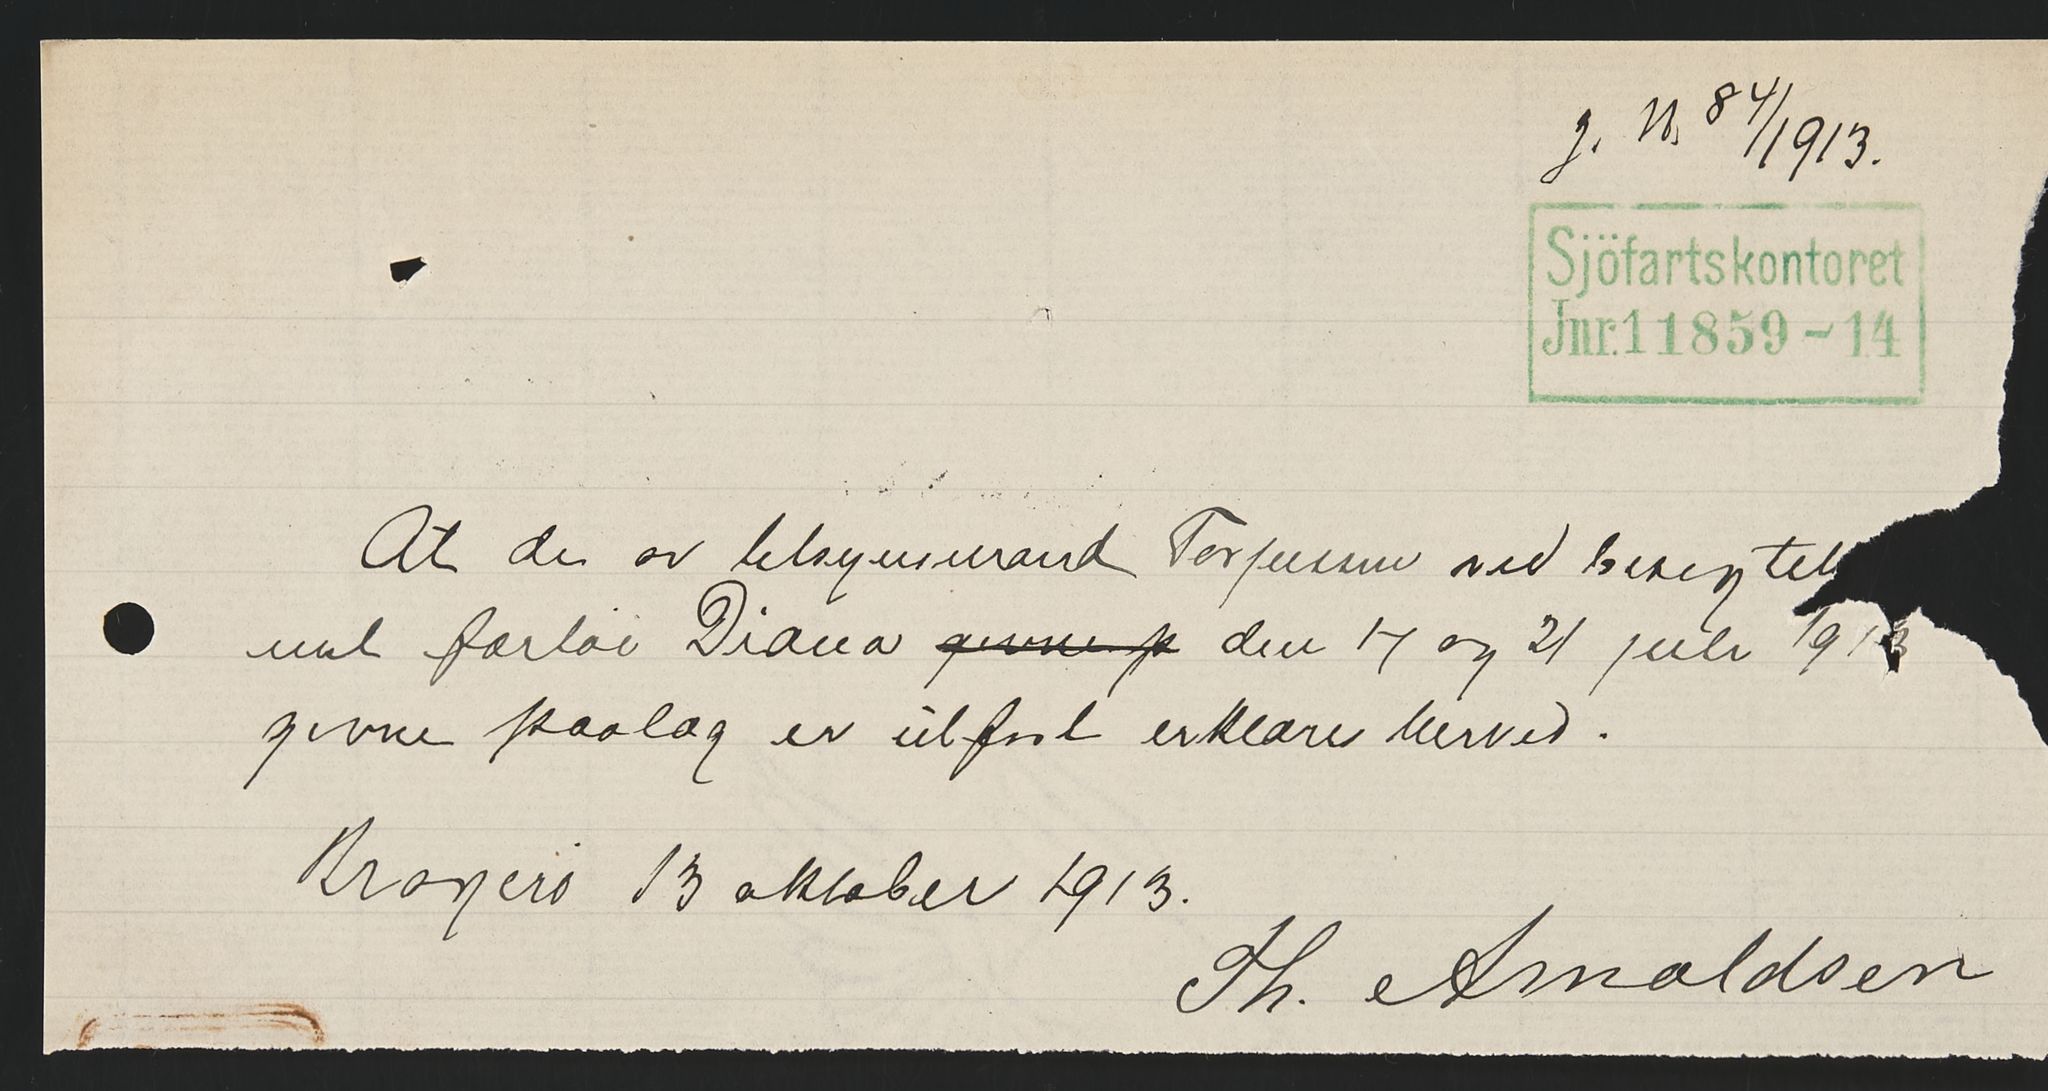 J. N. 84/1913.
Sjöfartskontoret
Jnr. 11859 - 14
At de av tilsynsmand Terjesen ved besigtel
mcl fartøi Diana givne p den 17 og 21 juli 1913
givne paalæg er utført erklæres herved.
Kragerö 13 oktober 1913.
Th. Arnoldsen